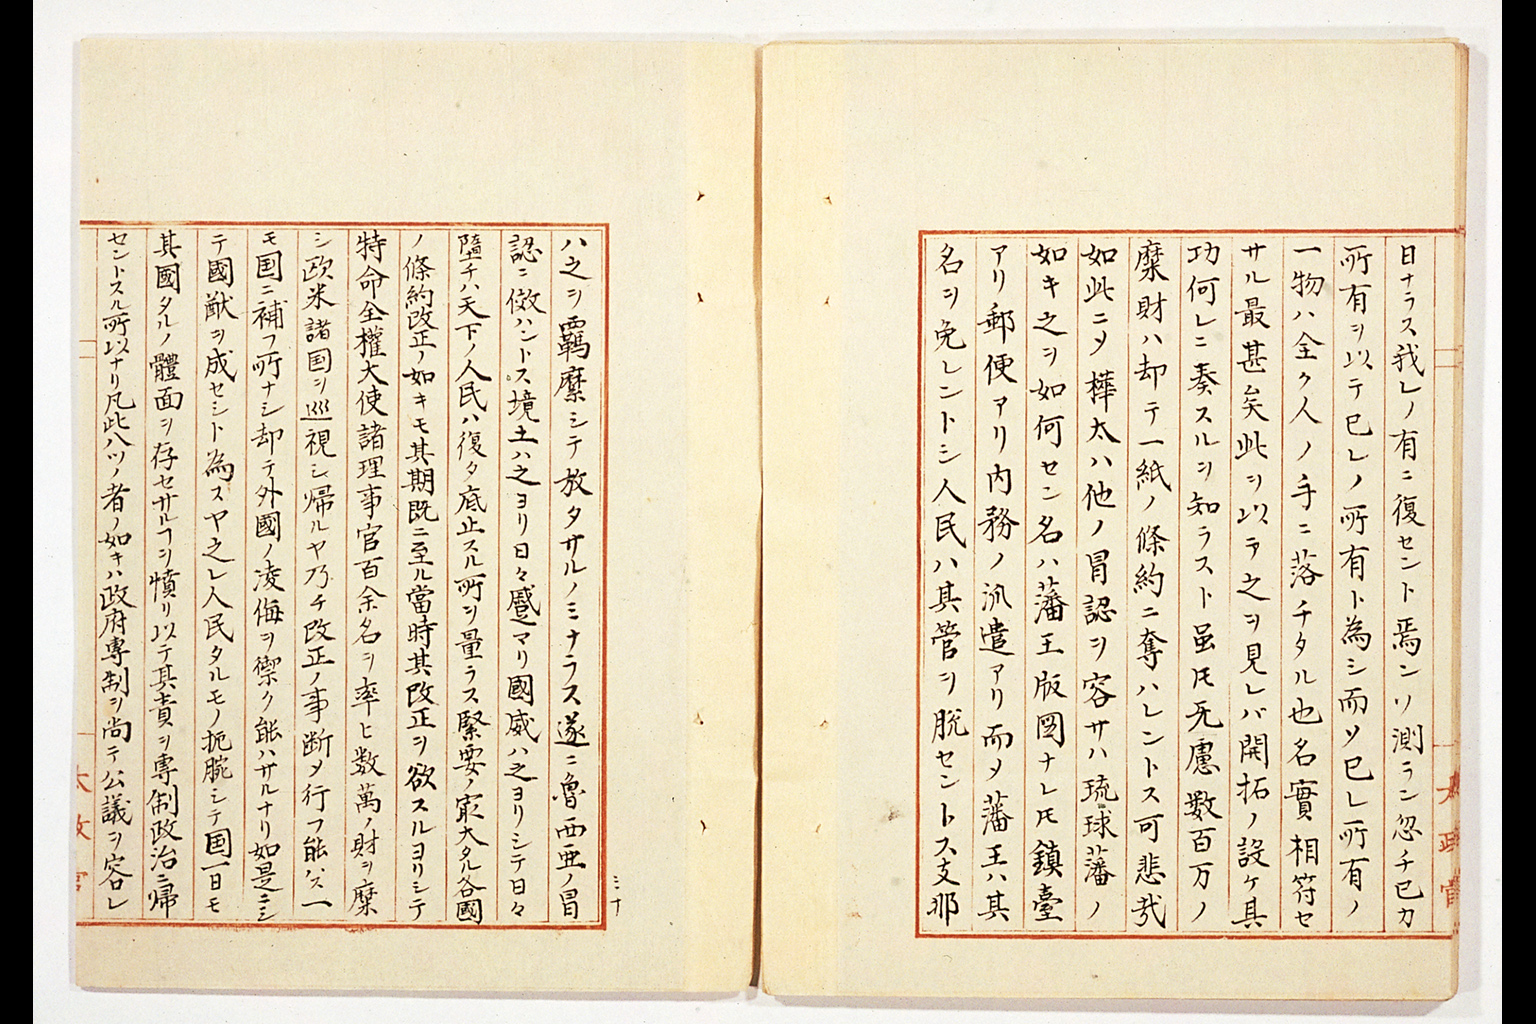 日ナラス我レノ有ニ復セント焉ンソ測ラン忽チ已カ
所有ヲ以テ已レノ所有ト為シ而ソ已レ所有ノ
一物ハ全ク人ノ手ニ落チタル也名實相符セ
サル最甚矣此ヲ以テ之ヲ見レバ開拓ノ設ケ其
功何レニ奏スルヲ知ラスト虽𪜈旡慮数百万ノ
糜財ハ却テ一紙ノ條約ニ奪ハレントス可悲哉
如此ニ〆樺太ハ他ノ冒認ヲ容サハ琉球藩ノ
如キ之ヲ如何セン名ハ藩王版圖ナレ𪜈鎮臺
アリ郵便アリ内務ノ派遣アリ而〆藩王ハ其
名ヲ免レントシ人民ハ其管ヲ脱セントス支那
ハ之ヲ羈縻シテ放タサルノミナラス遂ニ魯西亜ノ冒
認ニ傚ハントス境土ハ之ヨリ日々蹙マリ國威ハ之ヨリシテ日々
墮チハ天下ノ人民ハ復タ底止スル所ヲ量ラス緊要ノ㝡大タル各國
ノ條約改正ノ如キモ其期既ニ至ル當時其改正ヲ欲スルヨリシテ
特命全權大使諸理事官百余名ヲ率ヒ数萬ノ財ヲ糜
シ欧米諸国ヲ巡視シ帰ルヤ乃チ改正ノ事断〆行フ能ハズ一
モ国ニ補フ所ナシ却テ外國ノ凌侮ヲ禦ク能ハサルナリ如是ニシ
テ國猷ヲ成セシト為スヤ之レ人民タルモノ扼腕シテ国一日モ
其國タルノ體面ヲ存セサルヿヲ憤リ以テ其責ヲ專制政治ニ帰
セントスル所以ナリ凡此八ツノ者ノ如キハ政府專制ヲ尚テ公議ヲ容レ
三十
太政官
太政官